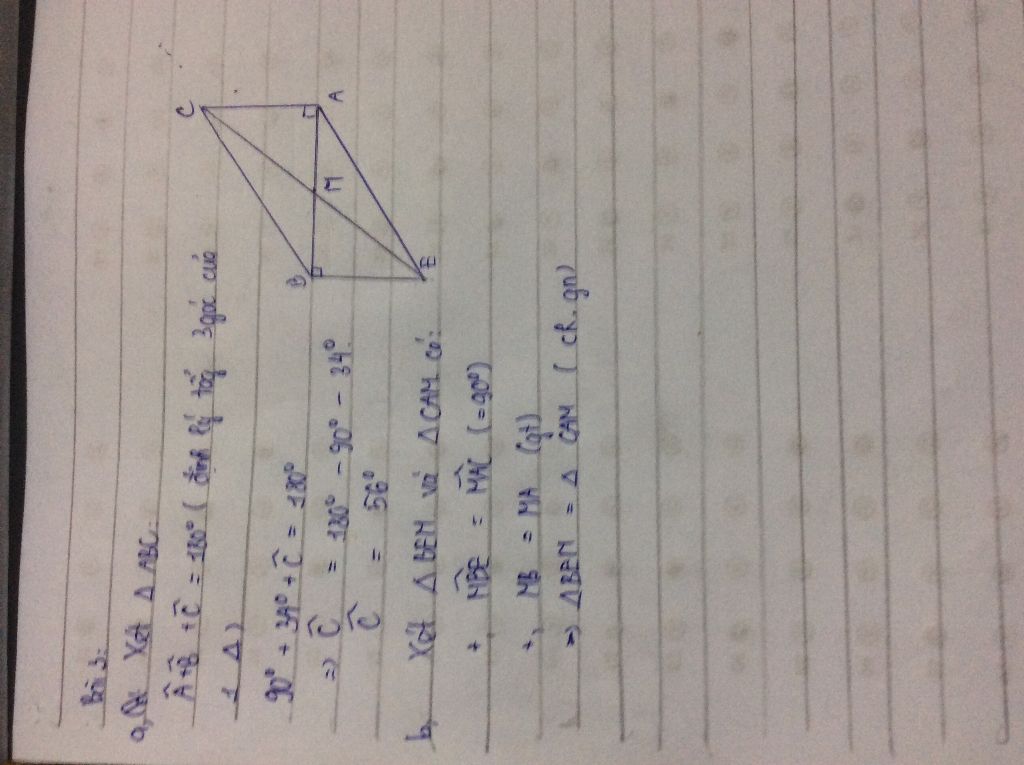 Bài 3:
a, Xét Δ ABC:
Â + B̂ + Ĉ = 180° ( định lý tổng 3 góc của
1 Δ )
90° + 34° + Ĉ = 180°
=> Ĉ = 180° - 90° - 34°
Ĉ = 56°
b, Xét Δ BEM và Δ CAM có:
+, M̂BE = M̂AC ( = 90° )
+, MB = MA (gt)
=> Δ BEM = Δ CAM ( ch. gn)
C
A
M
B
E